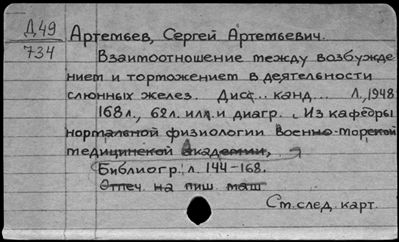 Д49
734
Артемьев, Сергей Артемьевич.
Взаимоотношение между возбужде-
нием и торможением в деятельности
слюнных желез. Дисс... канд... Л., 1948
168 л., 62 л. илл. и диагр. Из кафедры
нормальной физиологии Военно-морской
медицинской академии,
Библиогр: л. 144-168.
Отпеч. на пиш маш
См. след. карт.